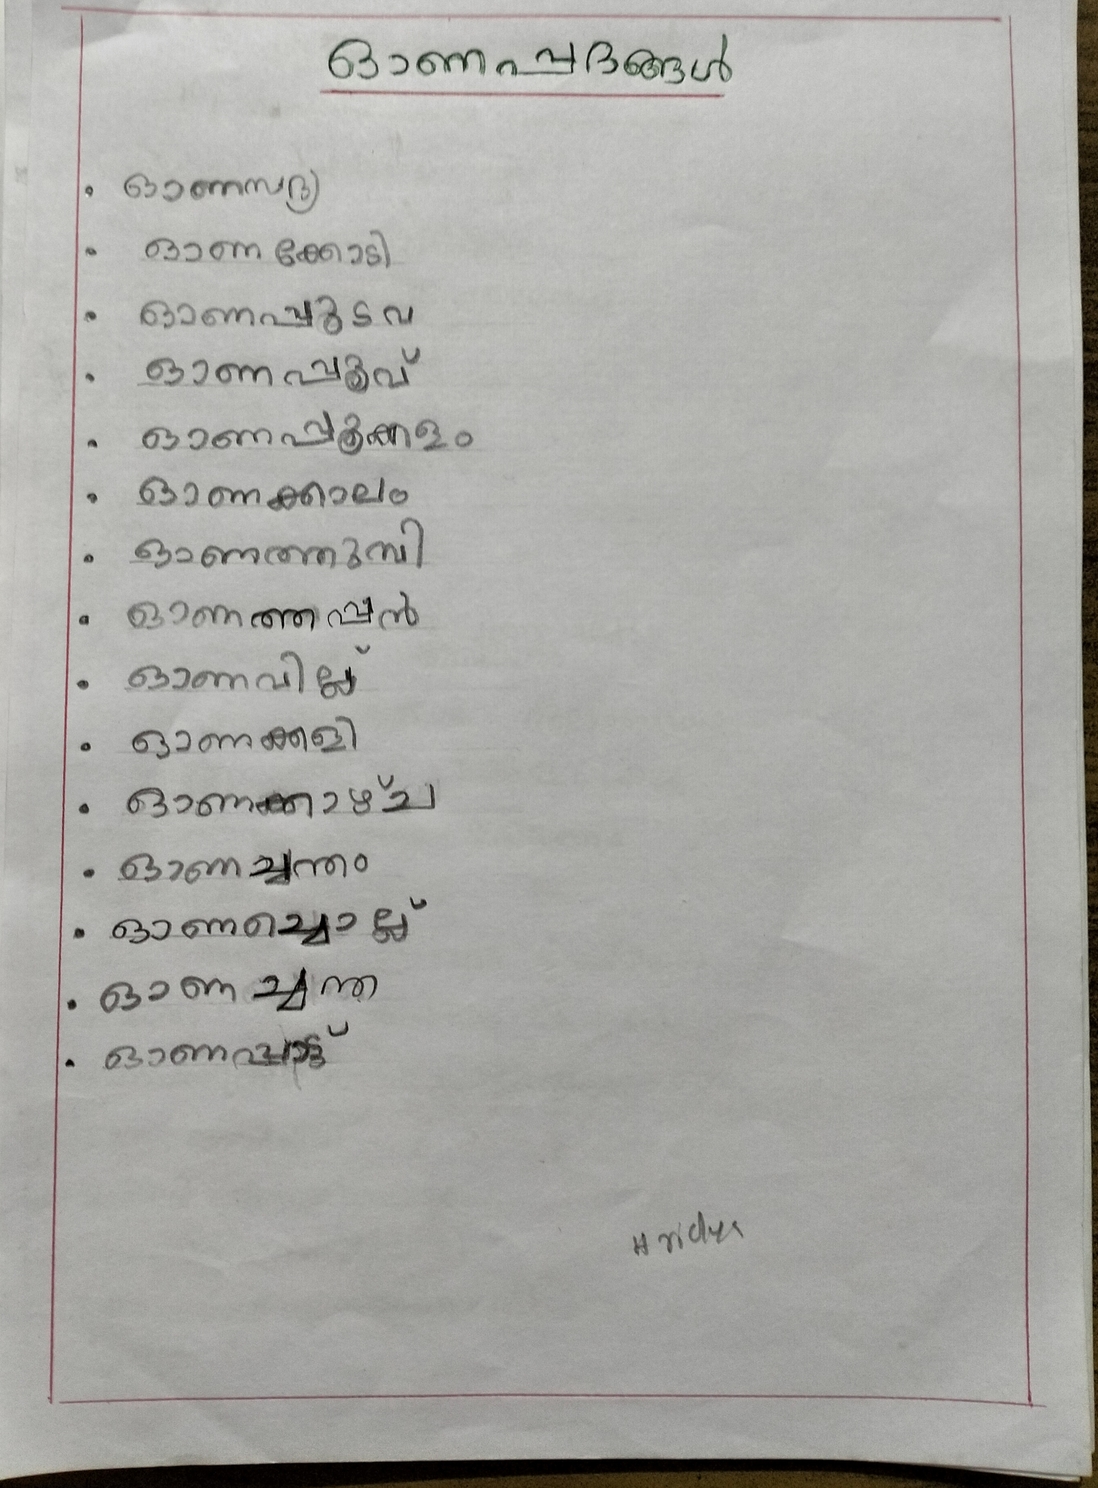 ഓണപ്പദങ്ങൾ
• ഓണസദ്യ
• ഓണക്കോടി
• ഓണപ്പുടവ
• ഓണപ്പൂവ്
• ഓണപ്പൂക്കളം
• ഓണക്കാലം
• ഓണത്തുമ്പി
• ഓണത്തപ്പൻ
• ഓണവില്ല്
• ഓണക്കളി
• ഓണക്കാഴ്ച
• ഓണച്ചന്തം
• ഓണച്ചൊല്ല്
• ഓണച്ചന്ത
• ഓണപ്പാട്ട്
Hridya